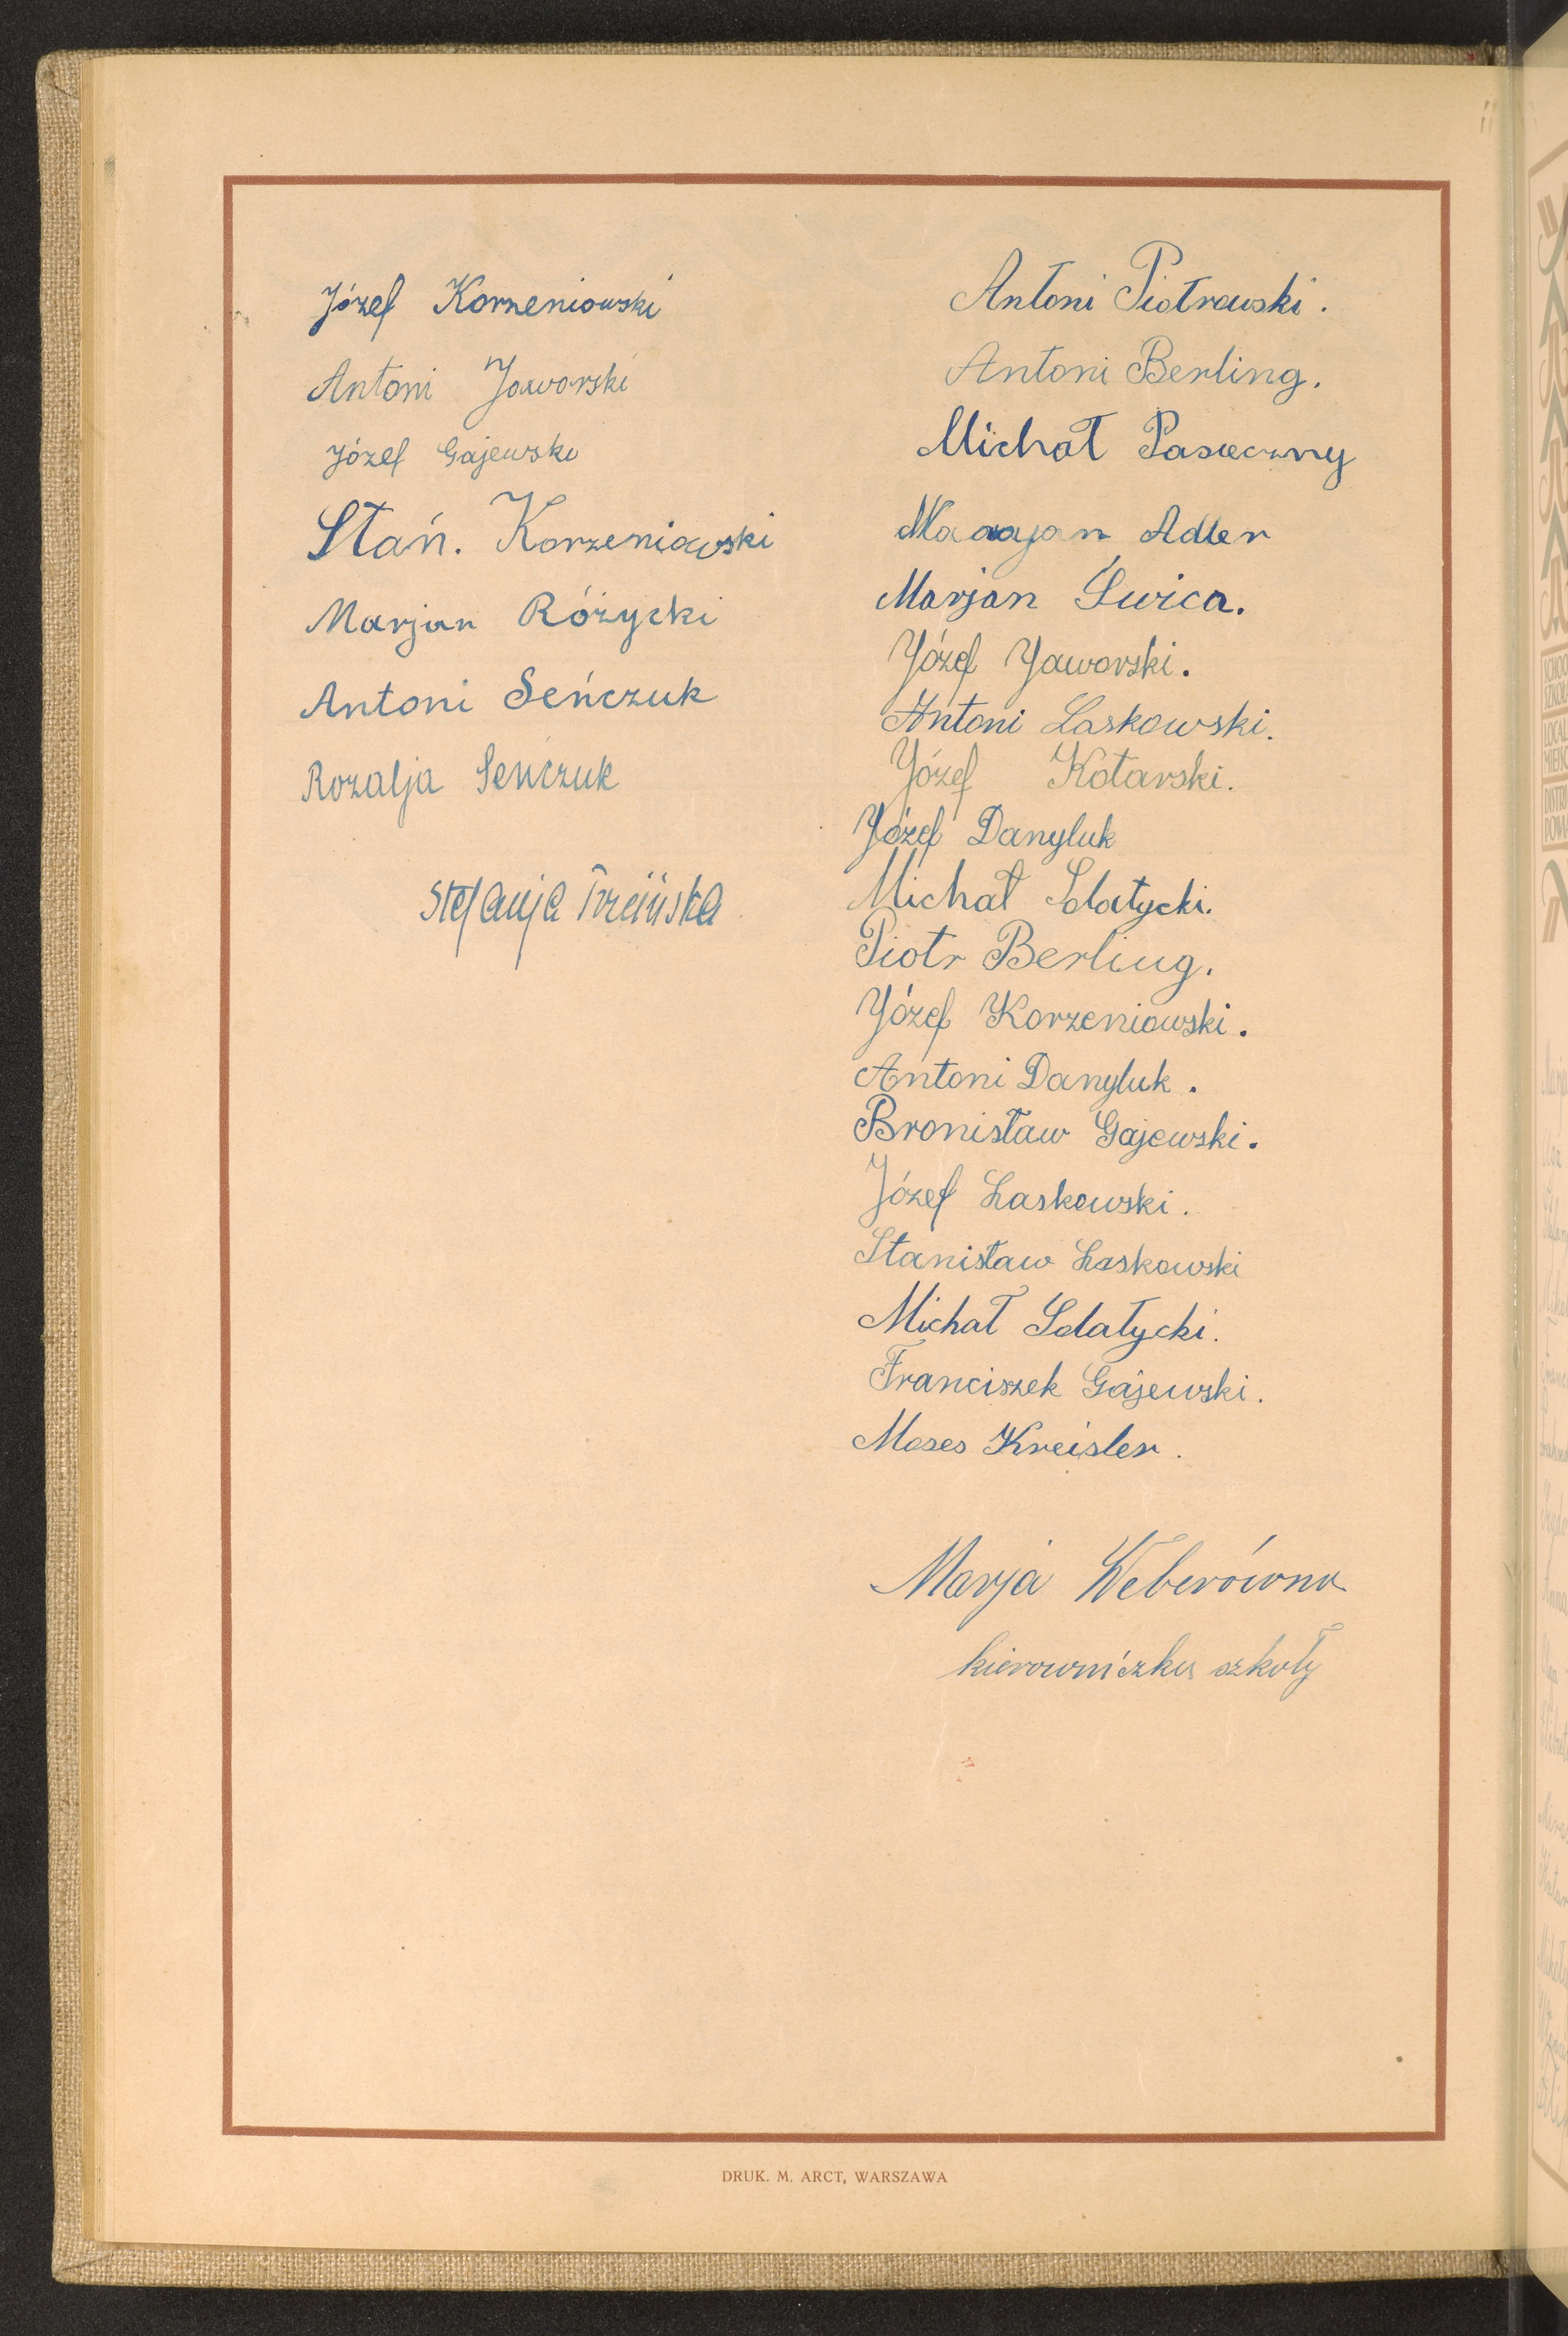 Józef Korzeniowski
Antoni Jaworski
Józef Gajewski
Stań. Korzeniowski
Marjan Różycki
Antoni Seńczuk
Rozalja Seńczuk
Stefanja
Antoni Piotrowski.
Antoni Berling.
Michał Pasieczny
Maryjan Adler
Marjan Świca.
Józef Jaworski.
Antoni Laskowski.
Józef Kotarski.
Józef Danyluk
Michał Sałatycki.
Piotr Berling.
Józef Korzeniowski.
Antoni Danyluk.
Bronisław Gajewski.
Józef Laskowski.
Stanisław Laskowski
Michał Sałatycki.
Franciszek Gajewski.
Moses Kreisler.
Marja Weberówna
kierowniczka szkoły
DRUK. M. ARCT, WARSZAWA